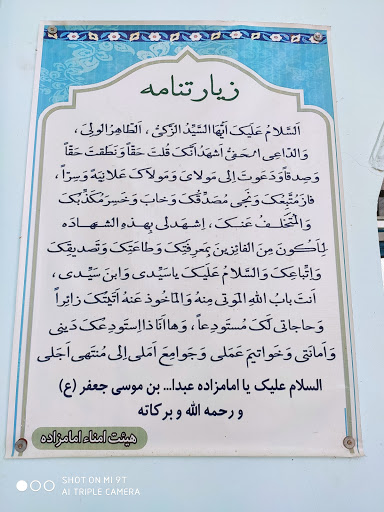 زیارتنامه
اَلسَّلامُ عَلَیْکَ اَیُّهَا السَّیِّدُ الزَّکیُّ ، اَلطّاهِرُ الوَلِیُّ ،
وَالدّاعِی الحَفِیُّ اَشْهَدُ اَنَّکَ قُلتَ حَقّاً وَ نَطَقتَ حَقّاً
وَ صِدقاً وَ دَعَوتَ اِلی مَولایَ وَ مَولاکَ عَلانِیَةً وَ سِرّاً ،
فازَ مُتَّبِعُکَ وَ نَجی مُصَدِّقُکَ وَ خابَ وَ خَسِرَ مُکَذِّبُکَ
وَ المُتَخَلِّفُ عَنکَ ، اِشهَد لی بِهذِهِ الشَّهادَه
لِاَکُونَ مِنَ الفائِزینَ بِمَعرِفَتِکَ وَ طاعَتِکَ وَ تَصدیقِکَ
وَ اتِّباعِکَ وَ السَّلامُ عَلَیکَ یا سَیِّدی وَ ابنَ سَیِّدی ،
اَنتَ بابُ اللهِ المُوتی مِنهُ وَ المَاخُوذُ عَنهُ اَتَیتُکَ زائِراً
وَ حاجاتی لَکَ مُستَودِعاً ، وَ ها اَنَا ذا اِستَودِعُکَ دینی
وَ اَمانَتی وَ خَواتیمَ عَمَلی وَ جَوامِعَ اَمَلی اِلی مُنتَهی اَجَلی
السلام علیک یا امامزاده عبدا... بن موسی جعفر (ع)
و رحمه الله و برکاته
هیئت امناء امامزاده
SHOT ON MI 9T
AI TRIPLE CAMERA